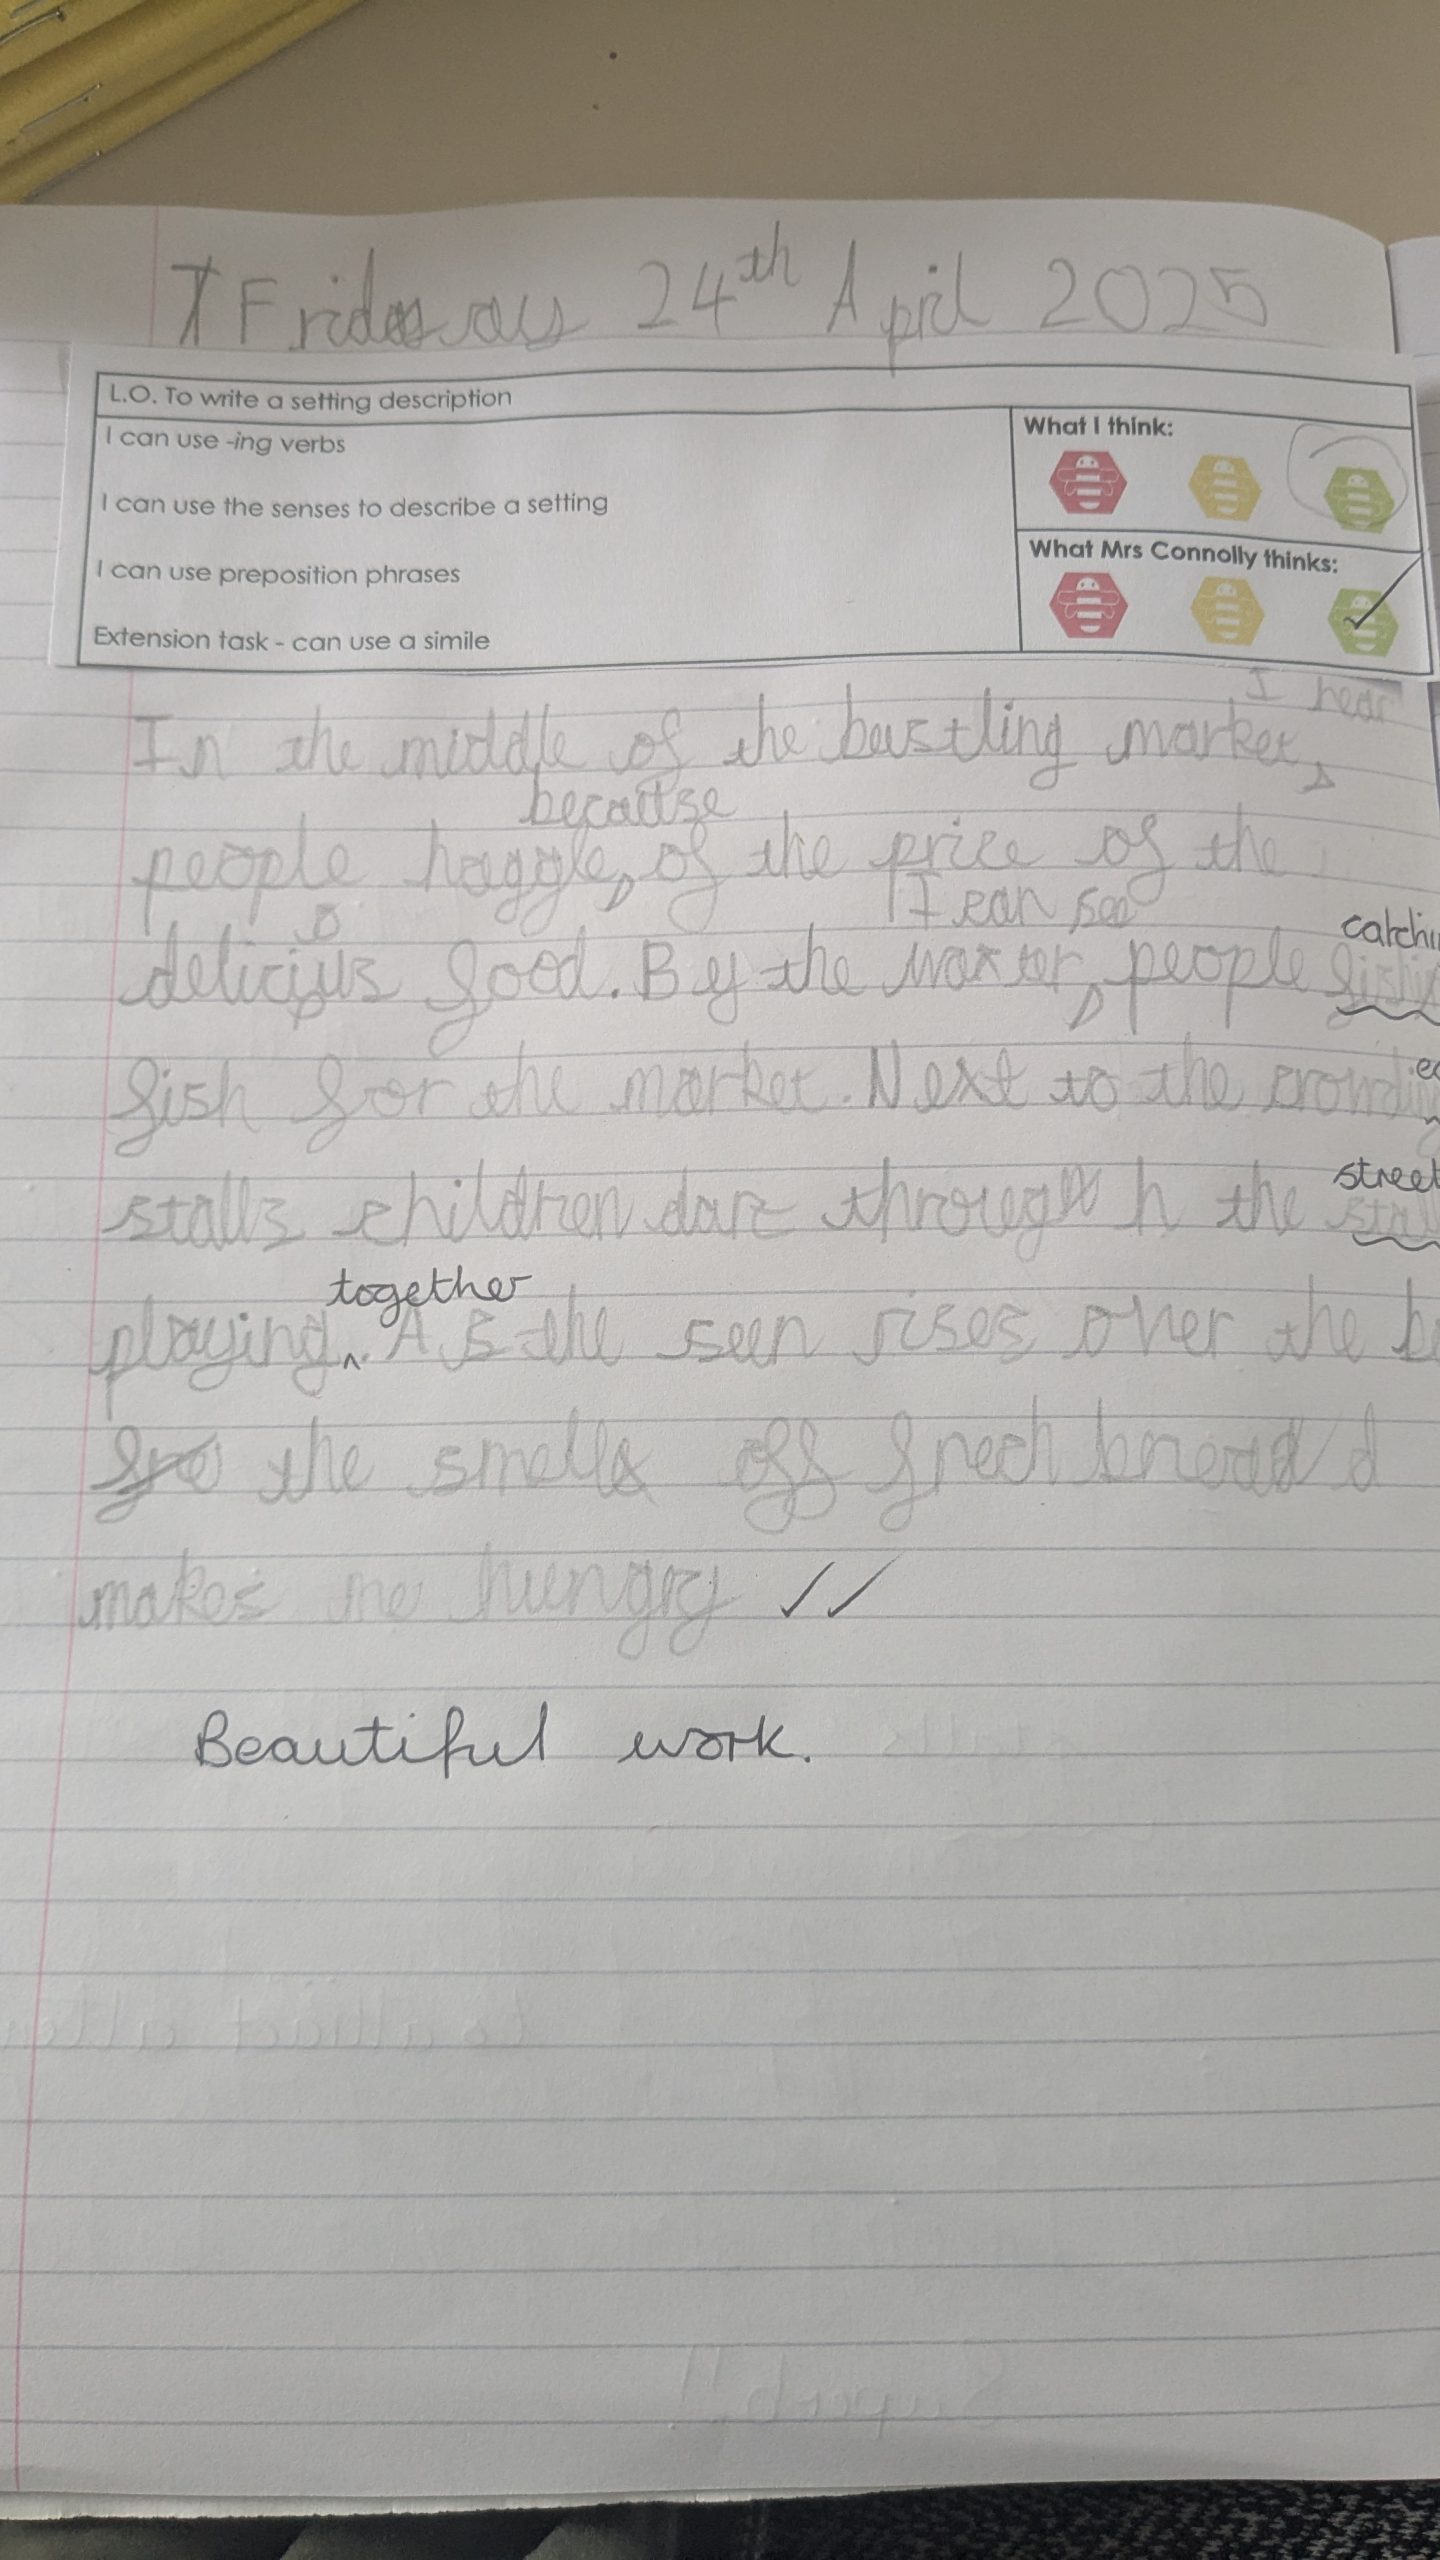 Friday 24th April 2025
L.O. To write a setting description
I can use -ing verbs
I can use the senses to describe a setting
I can use preposition phrases
Extension task - can use a simile
What I think:
What Mrs Connolly thinks:
I hear
In the middle of the bustling market,
because
people haggle, of the price of the
I can see
delicius food. By the water, people
catchi
fish for the market. Next to the
stalls children dart through the
street
together
playing. As the sun rises over the
the smells off frech bread
makes me hungry
Beautiful work.